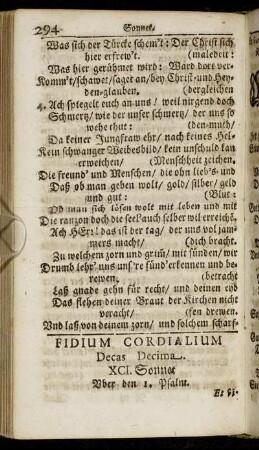 294 Sonnet.
Was sich der Türcke schem't: Der Christ sich
hier erfrew't. (maledeit:
Was hier gerühmt wird: Ward dort ver-
Komm't/schawet/saget an/bey Christ-und Hey-
den-glauben. (dergleichen
4. Ach spiegelt euch an uns/ weil nirgend doch
Schmertz/ wie der unser schmertz/ der uns so
wehe thut: (den-muth/
Da keiner Jungfraw ehr/ noch keines Hel-
Kein schwanger Weibesbild/ kein unschuld kan
erweichen/ (Menschheit zeichen.
Die freund' und Menschen/ die ohn lieb's-und
Daß ob man geben wolt/ gold/silber/geld
und gut: (Blut:
Ob man sich lösen wolt mit leben und mit
Die ranzon doch die seel'auch selber wil erreichē.
Ach HErr! das ist der tag/ der uns vol jam-
mers macht/ (dich bracht.
Zu welchem zorn und grim̄/ mit sünden/wir
Drumb lehr' uns uns're sünd'erkennen und be-
rewen. (betracht
Laß gnade gehn für recht/ und deinen eyd
Das flehen deiner Braut der Kirchen nicht
veracht/ (sen drewen.
Und laß von deinem zorn/ und solchem scharf-
FIDIUM CORDIALIUM
Decas Decima.
XCI. Sonnet
Vber den 1. Psalm.